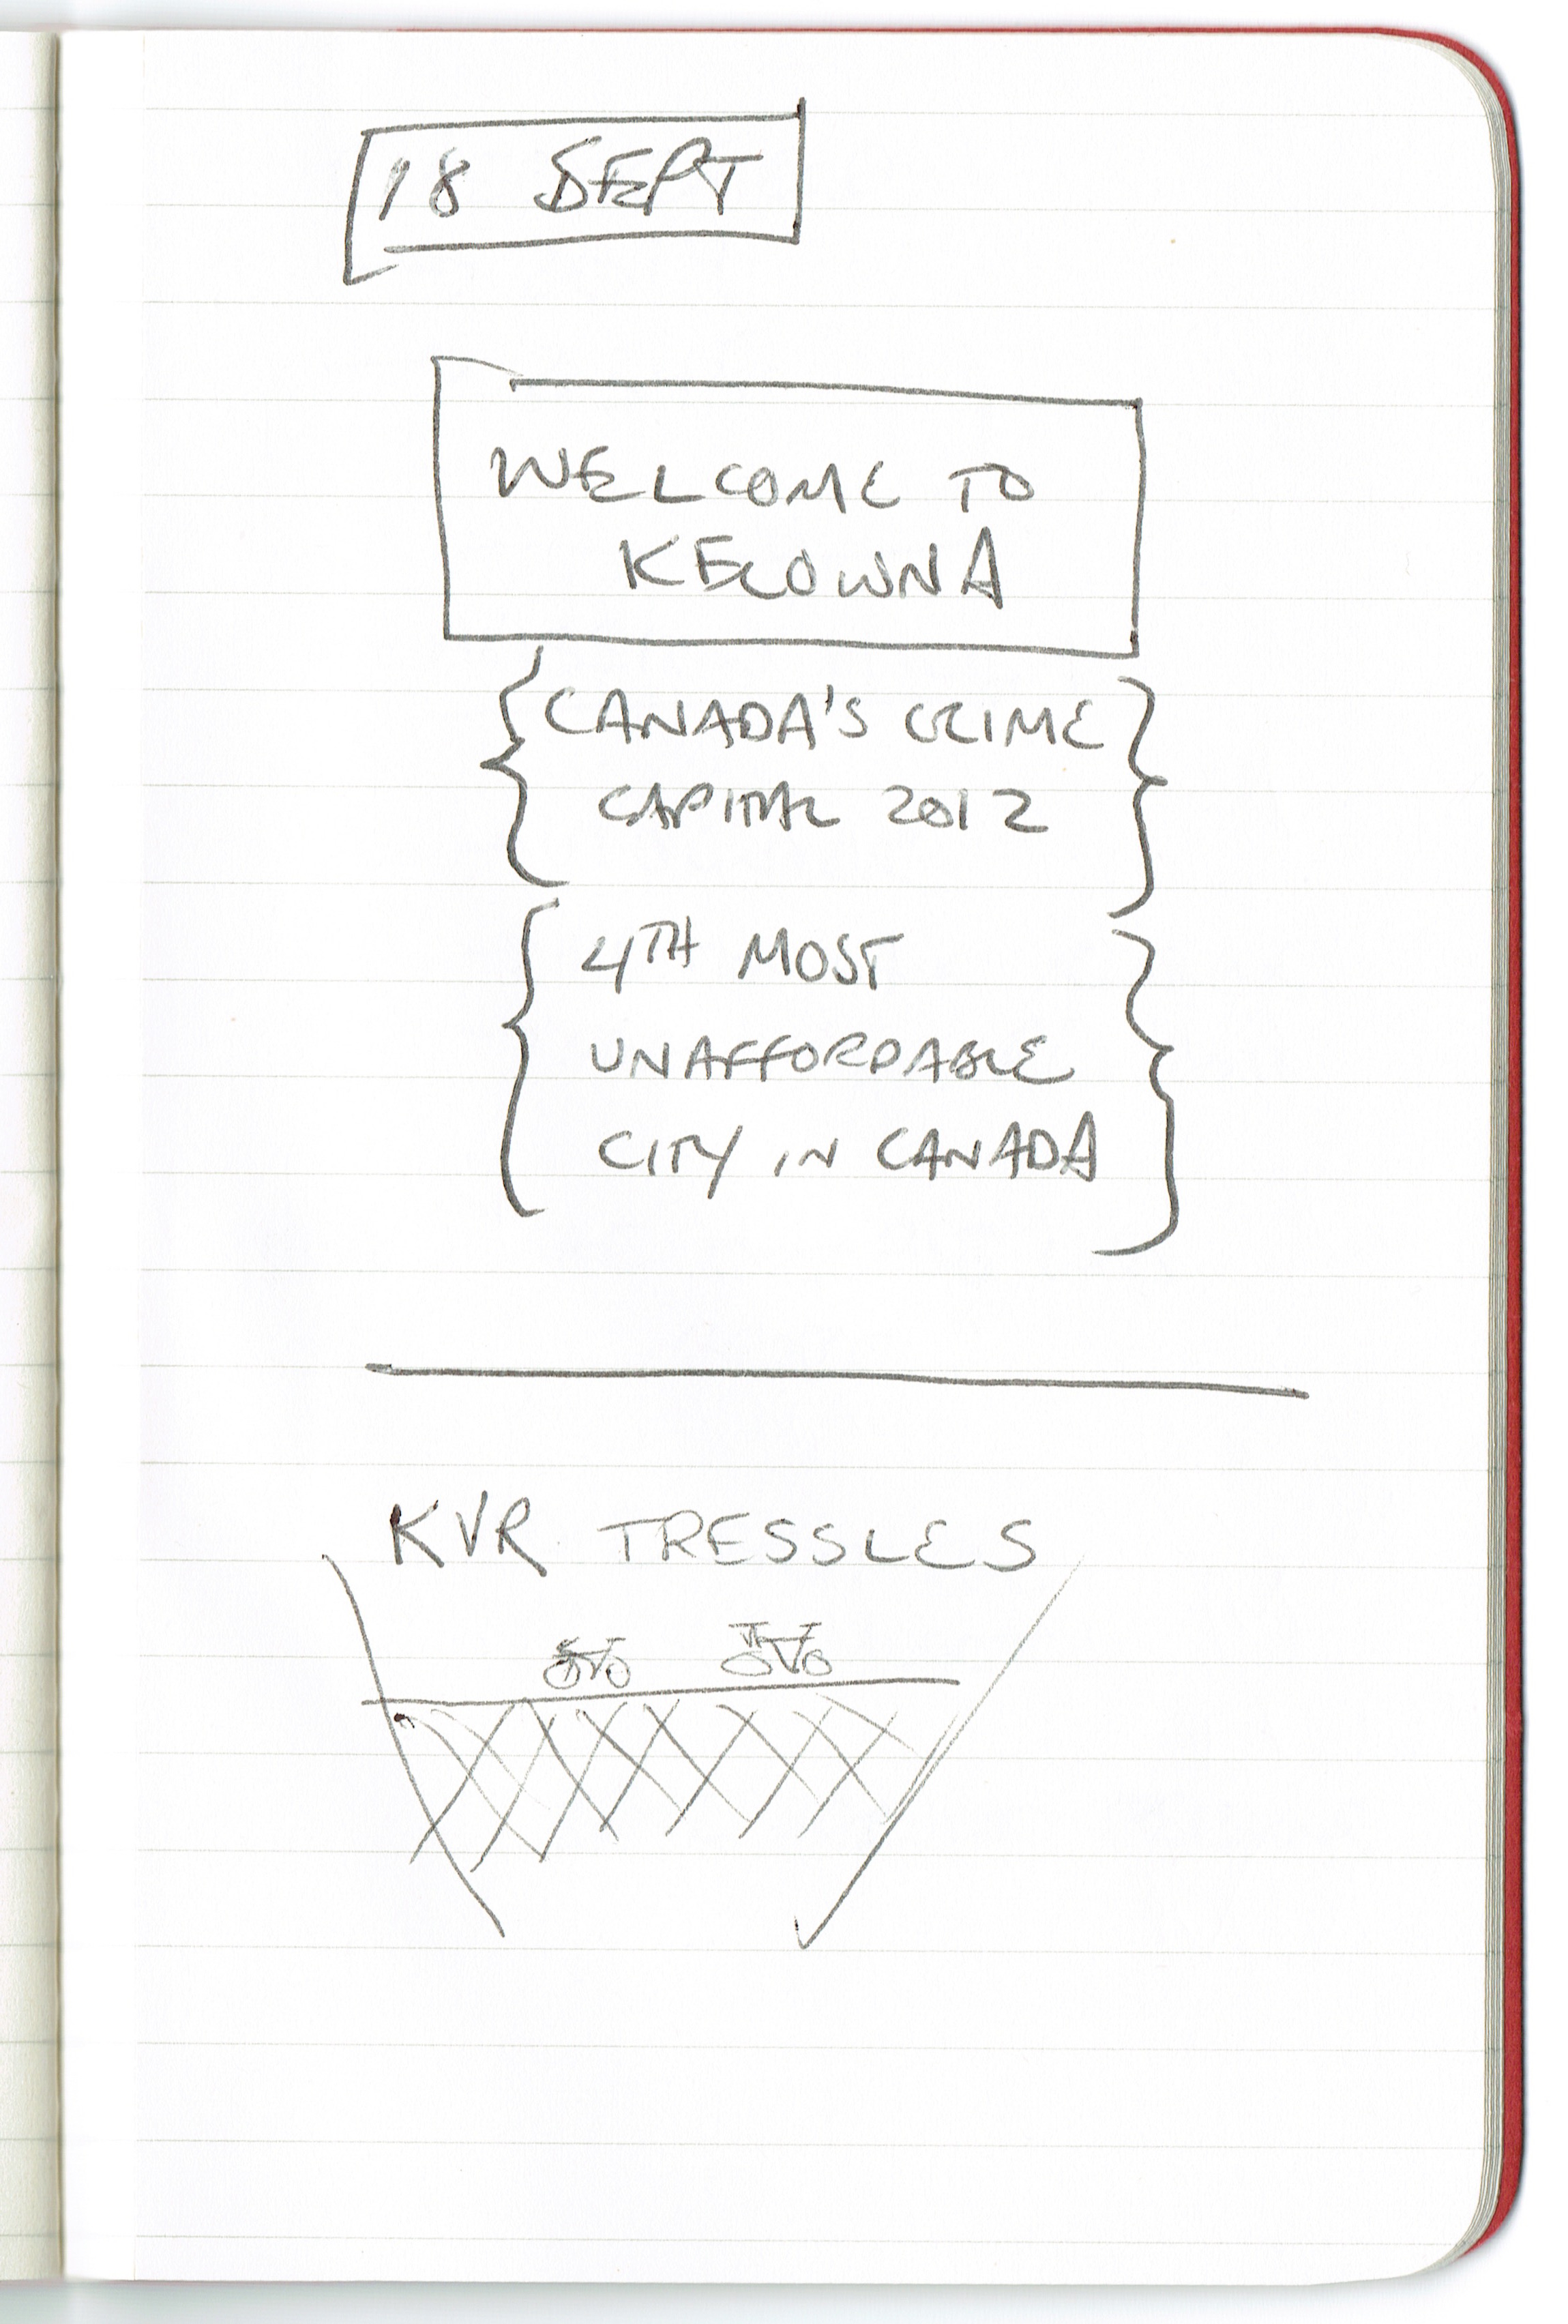 18 SEPT
WELCOME TO
KELOWNA
CANADA'S CRIME
CAPITAL 2012
4TH MOST
UNAFFORDABLE
CITY IN CANADA
KVR TRESSLES